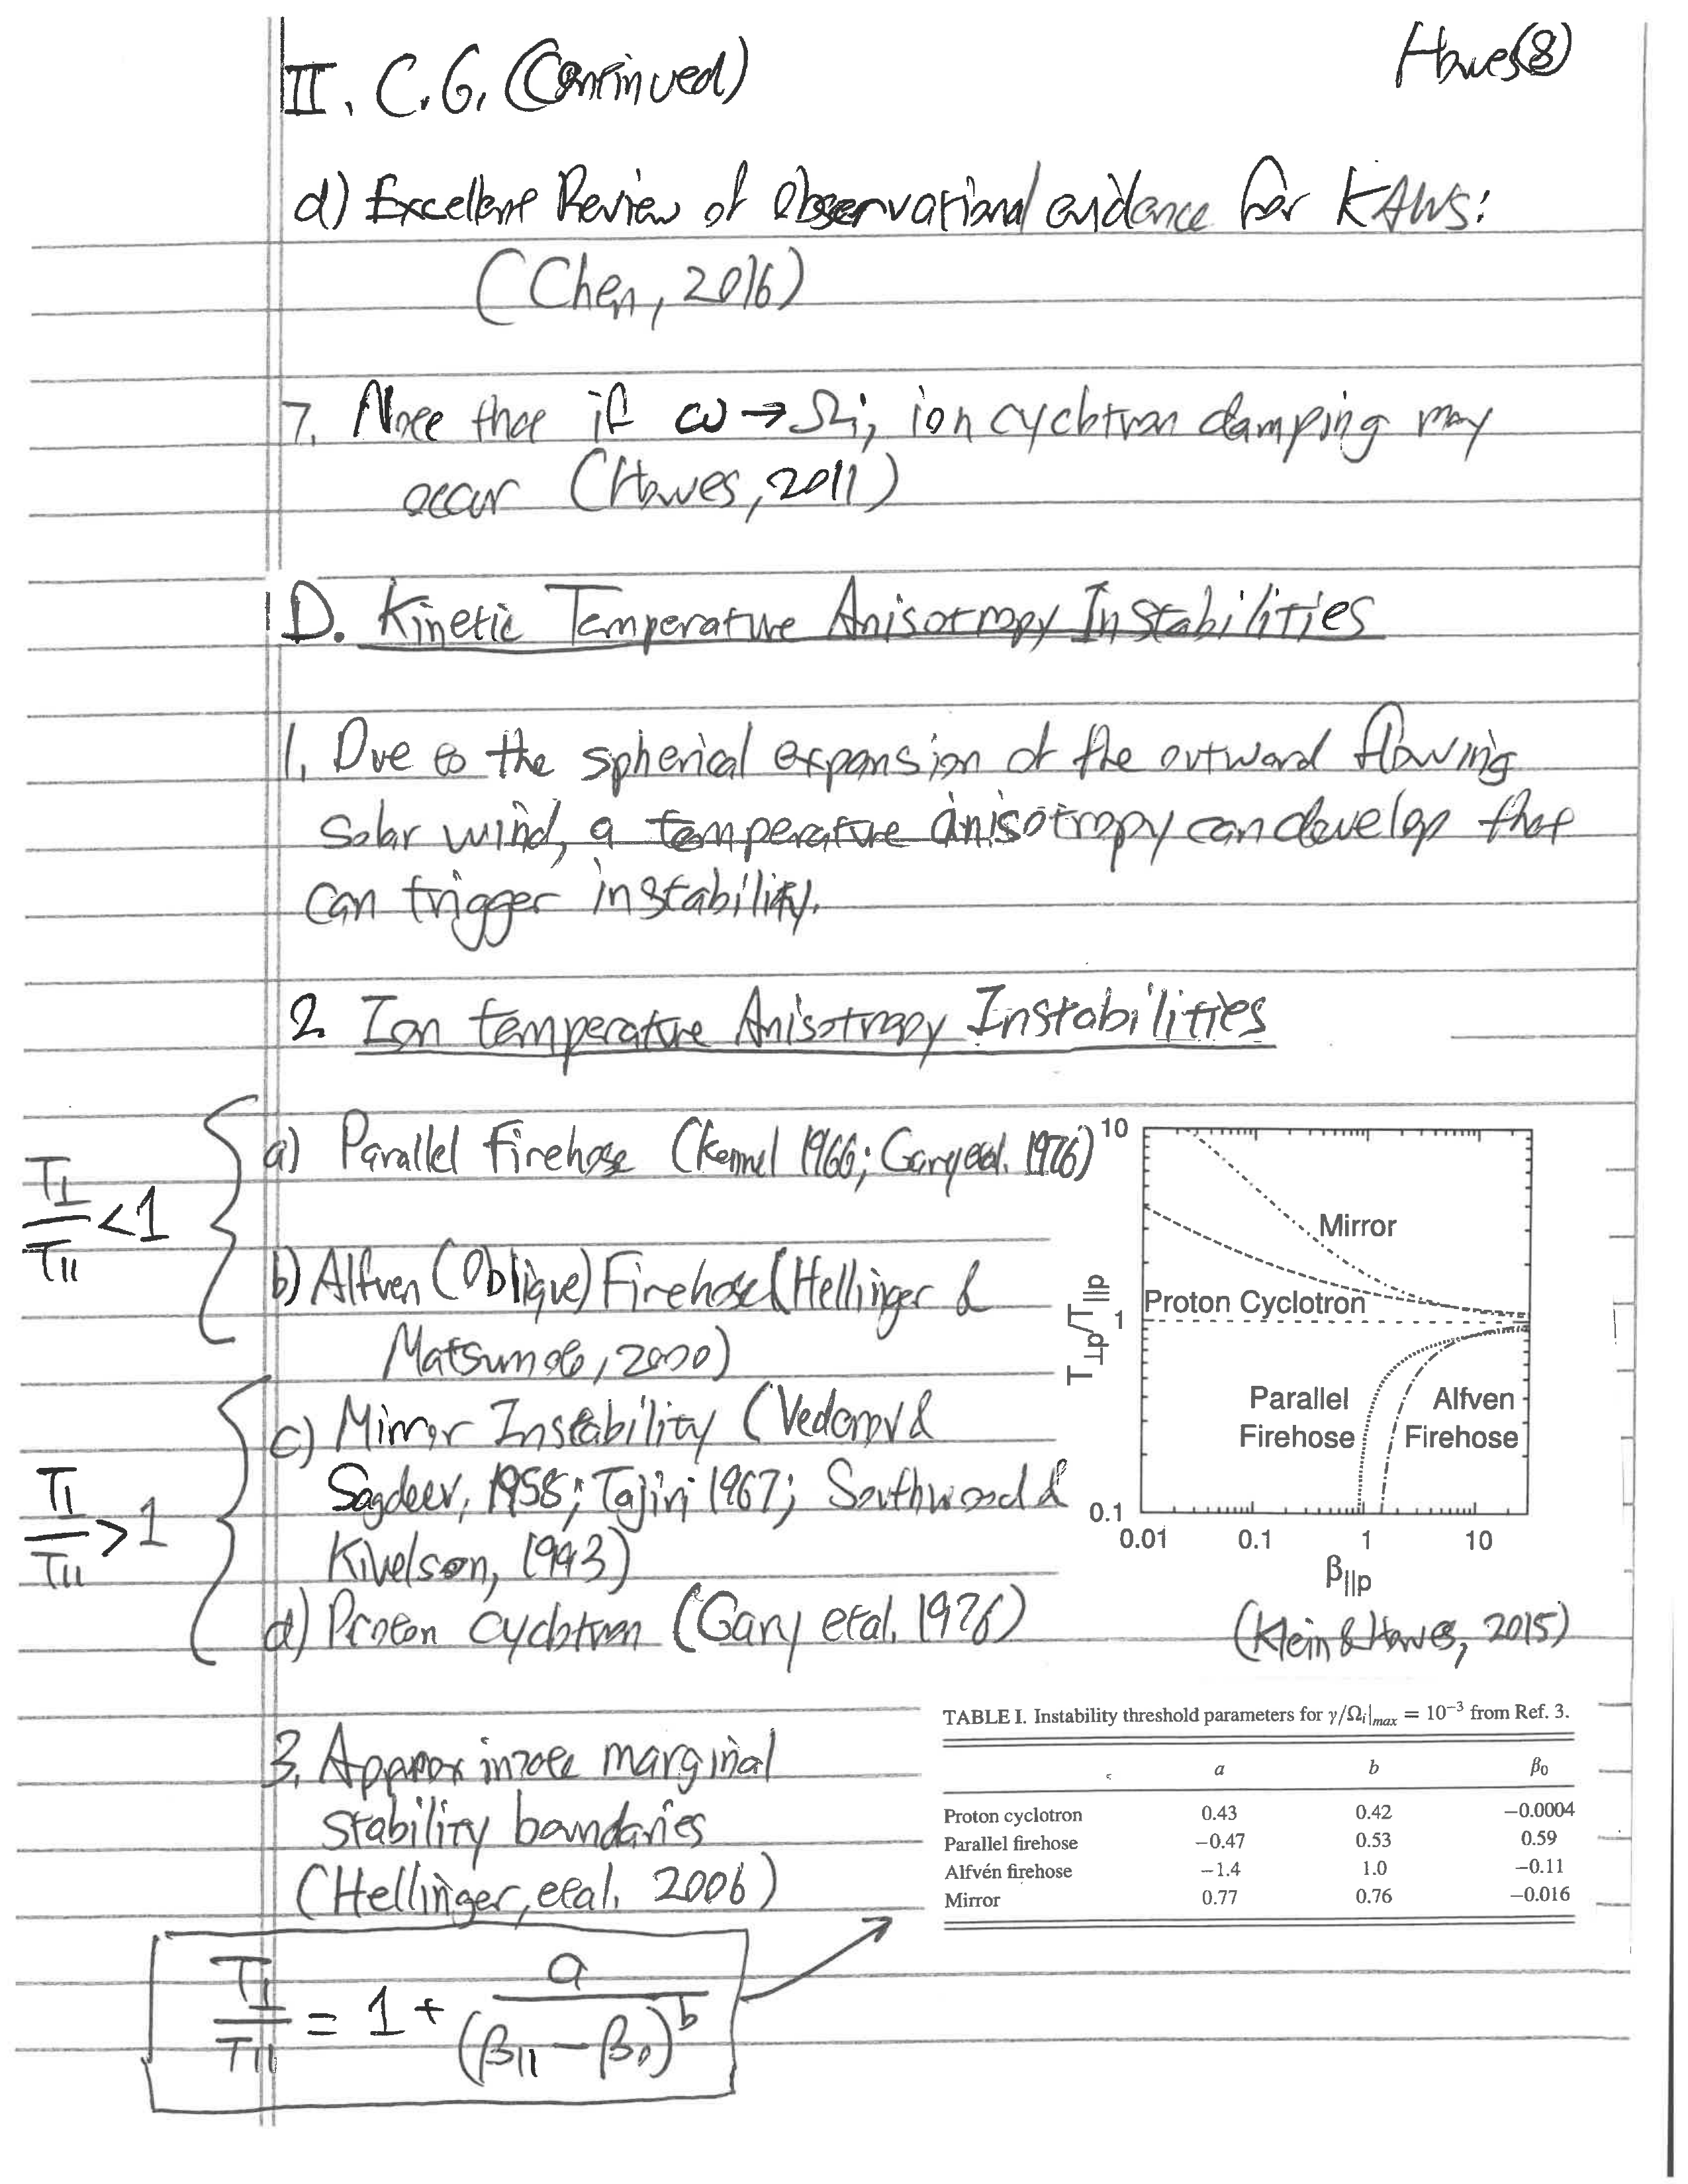 Howes(8)
II. C.6. (Continued)
d) Excellent Review of observational evidence for KAWs:
(Chen, 2016)
7. Note that if ω→Ωi, ion cyclotron damping may
occur (Howes, 2011)
D. Kinetic Temperature Anisotropy Instabilities
1. Due to the spherical expansion of the outward flowing
solar wind, a temperature anisotropy can develop that
can trigger instability.
2. Ion temperature Anisotropy Instabilities
T⊥/T∥ < 1
a) Parallel Firehose (Kennel 1966; Gary et al. 1976)
b) Alfven (Oblique) Firehose (Hellinger &
Matsumoto, 2000)
T⊥/T∥ > 1
c) Mirror Instability (Vedenov &
Sagdeev, 1958; Tajiri 1967; Southwood &
Kivelson, 1993)
d) Proton cyclotron (Gary et al. 1976)
10
Mirror
Proton Cyclotron
1
T⊥p/T∥p
Parallel Firehose
Alfven Firehose
0.1
0.01 0.1 1 10
β∥p
(Klein & Howes, 2015)
3. Approximate marginal
stability boundaries
(Hellinger, et al. 2006)
T⊥/T∥ = 1 + a/(β∥ − β₀)^b
TABLE I. Instability threshold parameters for γ/Ωi|max = 10⁻³ from Ref. 3.
a b β₀
Proton cyclotron 0.43 0.42 −0.0004
Parallel firehose −0.47 0.53 0.59
Alfvén firehose −1.4 1.0 −0.11
Mirror 0.77 0.76 −0.016